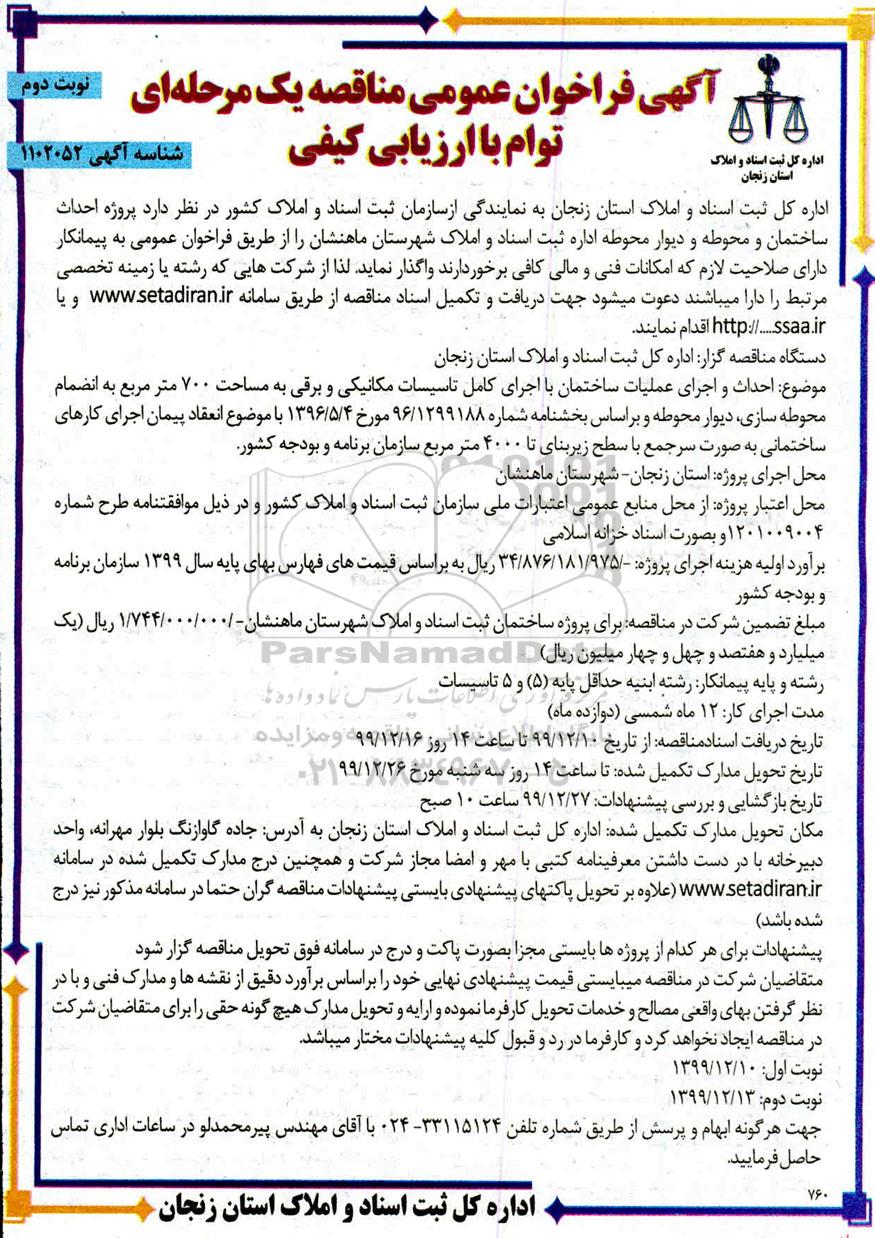 نوبت دوم
شناسه آگهی ۱۱۰۲۰۵۲
آگهی فراخوان عمومی مناقصه یک مرحله‌ای
توام با ارزیابی کیفی
اداره کل ثبت اسناد و املاک
استان زنجان
اداره کل ثبت اسناد و املاک استان زنجان به نمایندگی ازسازمان ثبت اسناد و املاک کشور در نظر دارد پروژه احداث
ساختمان و محوطه و دیوار محوطه اداره ثبت اسناد و املاک شهرستان ماهنشان را از طریق فراخوان عمومی به پیمانکار
دارای صلاحیت لازم که امکانات فنی و مالی کافی برخوردارند واگذار نماید. لذا از شرکت هایی که رشته یا زمینه تخصصی
مرتبط را دارا میباشند دعوت میشود جهت دریافت و تکمیل اسناد مناقصه از طریق سامانه www.setadiran.ir و یا
http://.....ssaa.ir اقدام نمایند.
دستگاه مناقصه گزار: اداره کل ثبت اسناد و املاک استان زنجان
موضوع: احداث و اجرای عملیات ساختمان با اجرای کامل تاسیسات مکانیکی و برقی به مساحت ۷۰۰ متر مربع به انضمام
محوطه سازی، دیوار محوطه و براساس بخشنامه شماره ۹۶/۱۲۹۹۱۸۸ مورخ ۱۳۹۶/۵/۴ با موضوع انعقاد پیمان اجرای کارهای
ساختمانی به صورت سرجمع با سطح زیربنای تا ۴۰۰۰ متر مربع سازمان برنامه و بودجه کشور.
محل اجرای پروژه: استان زنجان- شهرستان ماهنشان
محل اعتبار پروژه: از محل منابع عمومی اعتبارات ملی سازمان ثبت اسناد و املاک کشور و در ذیل موافقتنامه طرح شماره
۱۲۰۱۰۰۹۰۰۴و بصورت اسناد خزانه اسلامی
برآورد اولیه هزینه اجرای پروژه: -/۳۴/۸۷۶/۱۸۱/۹۷۵ ریال به براساس قیمت های فهارس بهای پایه سال ۱۳۹۹ سازمان برنامه
و بودجه کشور
مبلغ تضمین شرکت در مناقصه: برای پروژه ساختمان ثبت اسناد و املاک شهرستان ماهنشان-/۱/۷۴۴/۰۰۰/۰۰۰ ریال (یک
میلیارد و هفتصد و چهل و چهار میلیون ریال)
رشته و پایه پیمانکار: رشته ابنیه حداقل پایه (۵) و ۵ تاسیسات
مدت اجرای کار: ۱۲ ماه شمسی (دوازده ماه)
تاریخ دریافت اسنادمناقصه: از تاریخ ۹۹/۱۲/۱۰ تا ساعت ۱۴ روز ۹۹/۱۲/۱۶
تاریخ تحویل مدارک تکمیل شده: تا ساعت ۱۴ روز سه شنبه مورخ ۹۹/۱۲/۲۶
تاریخ بازگشایی و بررسی پیشنهادات: ۹۹/۱۲/۲۷ ساعت ۱۰ صبح
مکان تحویل مدارک تکمیل شده: اداره کل ثبت اسناد و املاک استان زنجان به آدرس: جاده گاوازنگ بلوار مهرانه، واحد
دبیرخانه با در دست داشتن معرفینامه کتبی با مهر و امضا مجاز شرکت و همچنین درج مدارک تکمیل شده در سامانه
www.setadiran.ir (علاوه بر تحویل پاکتهای پیشنهادی بایستی پیشنهادات مناقصه گران حتما در سامانه مذکور نیز درج
شده باشد)
پیشنهادات برای هر کدام از پروژه ها بایستی مجزا بصورت پاکت و درج در سامانه فوق تحویل مناقصه گزار شود
متقاضیان شرکت در مناقصه میبایستی قیمت پیشنهادی نهایی خود را براساس برآورد دقیق از نقشه ها و مدارک فنی و با در
نظر گرفتن بهای واقعی مصالح و خدمات تحویل کارفرما نموده و ارایه و تحویل مدارک هیچ گونه حقی را برای متقاضیان شرکت
در مناقصه ایجاد نخواهد کرد و کارفرما در رد و قبول کلیه پیشنهادات مختار میباشد.
نوبت اول: ۱۳۹۹/۱۲/۱۰
نوبت دوم: ۱۳۹۹/۱۲/۱۳
جهت هرگونه ابهام و پرسش از طریق شماره تلفن ۳۳۱۱۵۱۲۴- ۰۲۴ با آقای مهندس پیرمحمدلو در ساعات اداری تماس
حاصل فرمایید.
۷۶۰
اداره کل ثبت اسناد و املاک استان زنجان
ParsNamadData